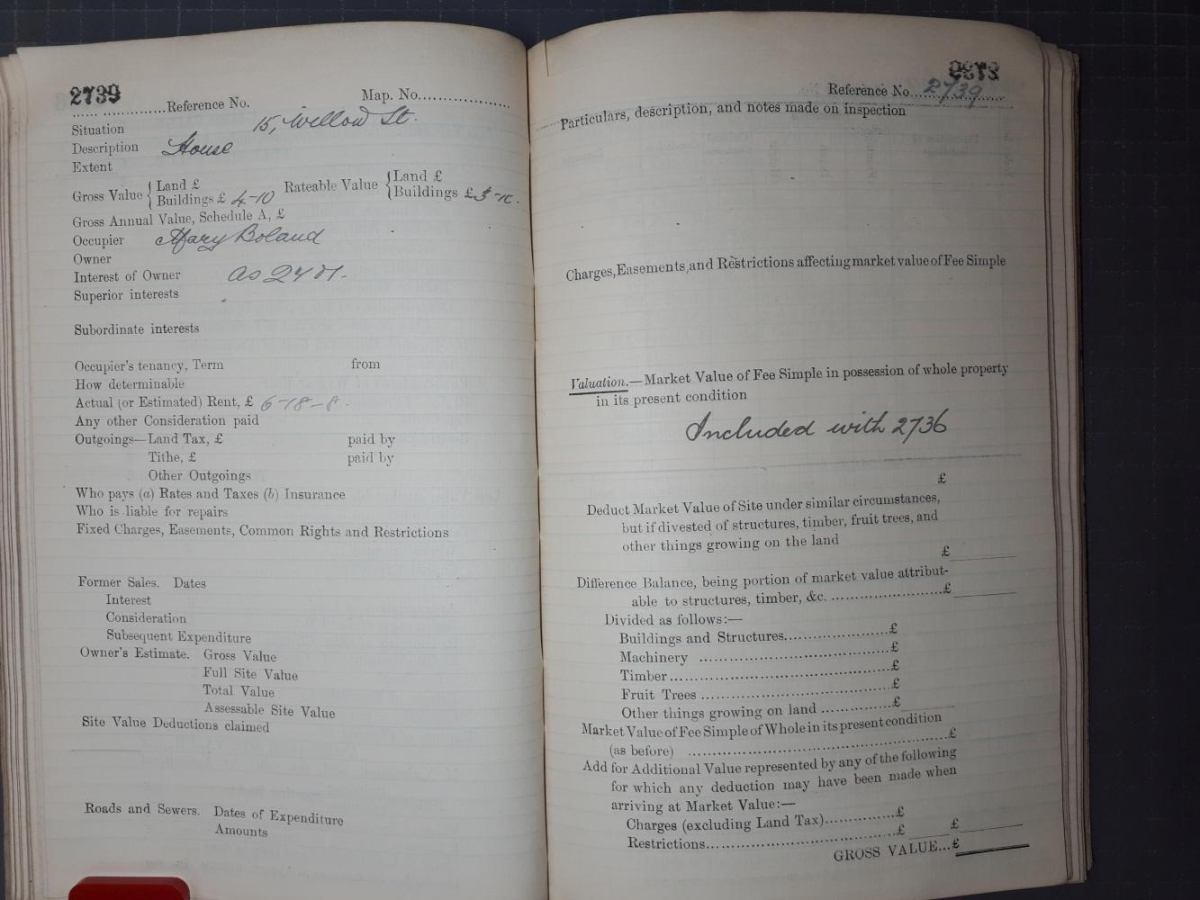 2739
Reference No. Map. No.
Situation 15, Willow St.
Description House
Extent
Gross Value { Land £ Rateable Value { Land £
Buildings £ 4-10 Buildings £
Gross Annual Value, Schedule A, £
Occupier Mary Boland
Owner
Interest of Owner as
Superior interests
Subordinate interests
Occupier's tenancy, Term from
How determinable
Actual (or Estimated) Rent, £ 6-18-8.
Any other Consideration paid
Outgoings—Land Tax, £ paid by
Tithe, £ paid by
Other Outgoings
Who pays (a) Rates and Taxes (b) Insurance
Who is liable for repairs
Fixed Charges, Easements, Common Rights and Restrictions
Former Sales. Dates
Interest
Consideration
Subsequent Expenditure
Owner's Estimate. Gross Value
Full Site Value
Total Value
Assessable Site Value
Site Value Deductions claimed
Roads and Sewers. Dates of Expenditure
Amounts
Reference No. 2739
Particulars, description, and notes made on inspection
Charges, Easements, and Restrictions affecting market value of Fee Simple
Valuation.—Market Value of Fee Simple in possession of whole property
in its present condition
Included with 2736
£
Deduct Market Value of Site under similar circumstances,
but if divested of structures, timber, fruit trees, and
other things growing on the land
£
Difference Balance, being portion of market value attribut-
able to structures, timber, &c. ........................£
Divided as follows:—
Buildings and Structures......................£
Machinery ........................................£
Timber.............................................£
Fruit Trees .......................................£
Other things growing on land ...............£
Market Value of Fee Simple of Whole in its present condition
(as before) ................................................£
Add for Additional Value represented by any of the following
for which any deduction may have been made when
arriving at Market Value:—
Charges (excluding Land Tax)...............£
Restrictions.......................................£ £
GROSS VALUE...£